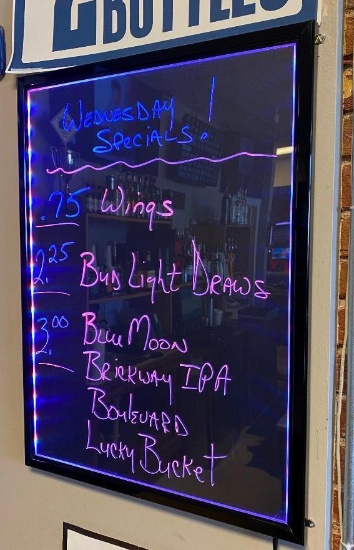 2 BOTTLES
WEDNESDAY
SPECIALS!
.75 Wings
2.25 Bud Light Draws
3.00 Blue Moon
Brickway IPA
Boulevard
Lucky Bucket